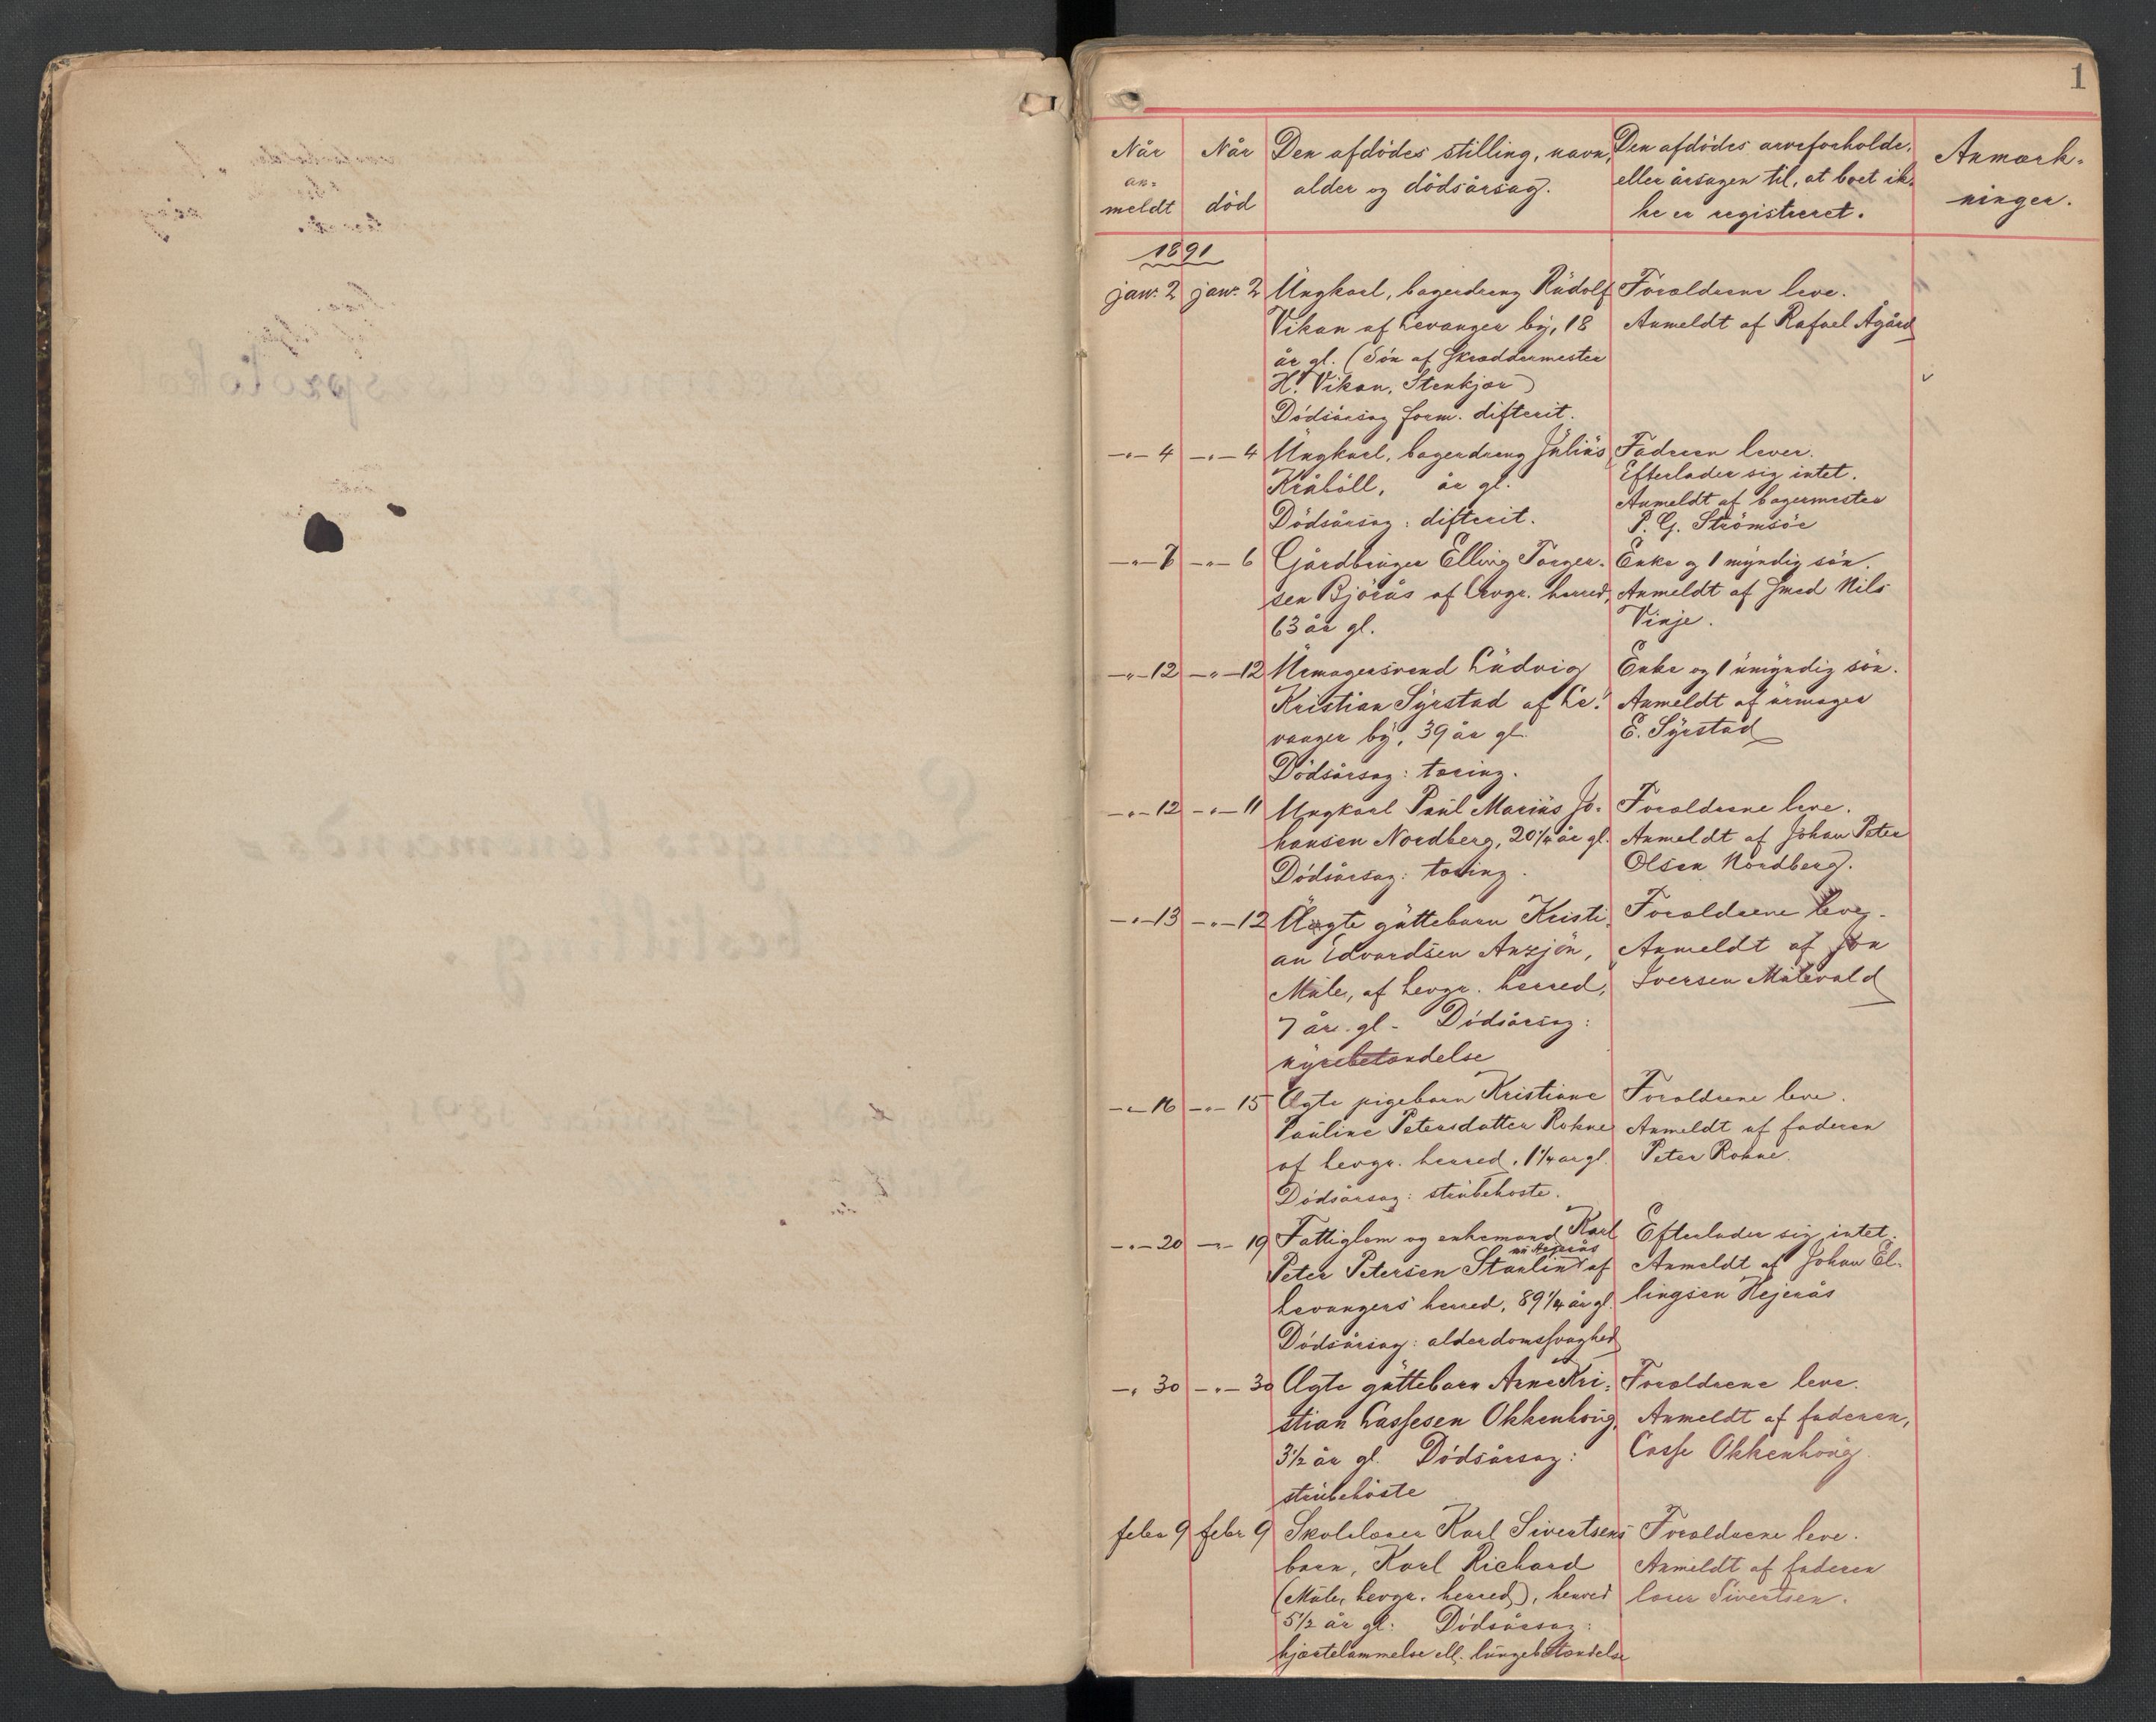 1
Når an= meldt
Når död
Den afdödes stilling, navn, alder og dödsårsag.
Den afdödes arveforholde, eller årsagen til, at boet ik= ke er registreret.
Anmærk= ninger.
1891
janr. 2 janr. 2 Ungkarl, bagerdreng Rudolf
Vikan af Levanger by, 18
år gl. (Sön af Skræddermester
H. Vikan, Stenkjær)
Dödsårsag form. difterit.
Forældrene leve.
Anmeldt af Rafael Ågård
—"— 4 —"— 4 Ungkarl, bagerdreng Julius
Kråböll, år gl.
Dödsårsag: difterit.
Faderen lever.
Efterlader sig intet.
Anmeldt af bagermester
P. G. Strömsöe
—"— 7 —"— 6 Gårdbruger Elling Torger=
sen Björås af Levgr. herred,
63 år gl.
Enke og 1 myndig sön.
Anmeldt af Smed Nils
Vinje.
—"— 12 —"— 12 Urmagersvend Ludvig
Kristian Syrstad af Le=
vanger by, 39 år gl.
Dödsårsag: tæring.
Enke og 1 umyndig sön.
Anmeldt af urmager
E. Syrstad
—"— 12 —"— 11 Ungkarl Paul Marius Jo=
hansen Nordberg, 20 1/4 år gl.
Dödsårsag: tæring.
Forældrene leve.
Anmeldt af Johan Peter
Olsen Nordberg.
—"— 13 —"— 12 Ægte guttebarn Kristi=
an Edvardsen
Mule, af Levgr. herred,
7 år. gl - Dödsårsag:
nyrebetændelse
Forældrene leve.
Anmeldt af Jon
Iversen Mulevald
—"— 16 —"— 15 Ægte pigebarn Kristiane
Pauline Petersdatter Rokne
af Levgr. herred, 1 1/4 år gl.
Dödsårsag: strubehoste.
Forældrene leve.
Anmeldt af faderen
Peter Rokne.
—"— 20 —"— 19 Fattiglem og enkemand Karl
Peter Petersen Staulin nu Hejerås af
Levangers herred, 89 1/4 år gl.
Dödsårsag: alderdomssvaghed
Efterlader sig intet.
Anmeldt af Johan El=
lingsen Hejerås
—" 30 —"— 30 Ægte guttebarn Arne Kri=
stian Lassesen Okkenhoug,
3 1/2 år gl. Dödsårsag:
strubehoste
Forældrene leve.
Anmeldt af faderen,
Lasse Okkenhoug.
febr 9 febr 9 Skolelærer Karl Sivertsens
barn, Karl Richard
(Mule, Levgr. herred), herred
5 1/2 år gl. Dödsårsag:
hjærtelammelse ell. lungebetændelse
Forældrene leve.
Anmeldt af faderen
lærer Sivertsen.